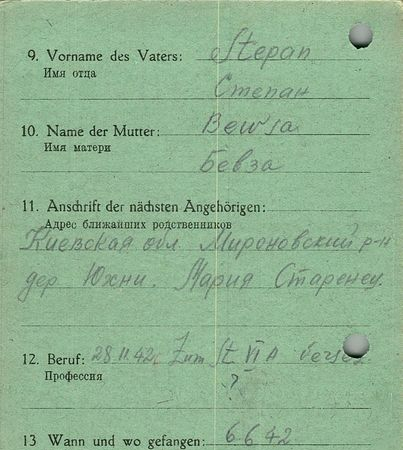 9. Vorname des Vaters: Stepan
Имя отца
Степан
10. Name der Mutter: Bewsa
Имя матери
Бевза
11. Anschrift der nächsten Angehörigen:
Адрес ближайших родственников
Киевская обл. Мироновский р-н
дер Юхни. Мария Старенец.
12. Beruf: 28.11.42. Zum St. VI A versetzt
Профессия
?
13 Wann und wo gefangen: 6 6 42